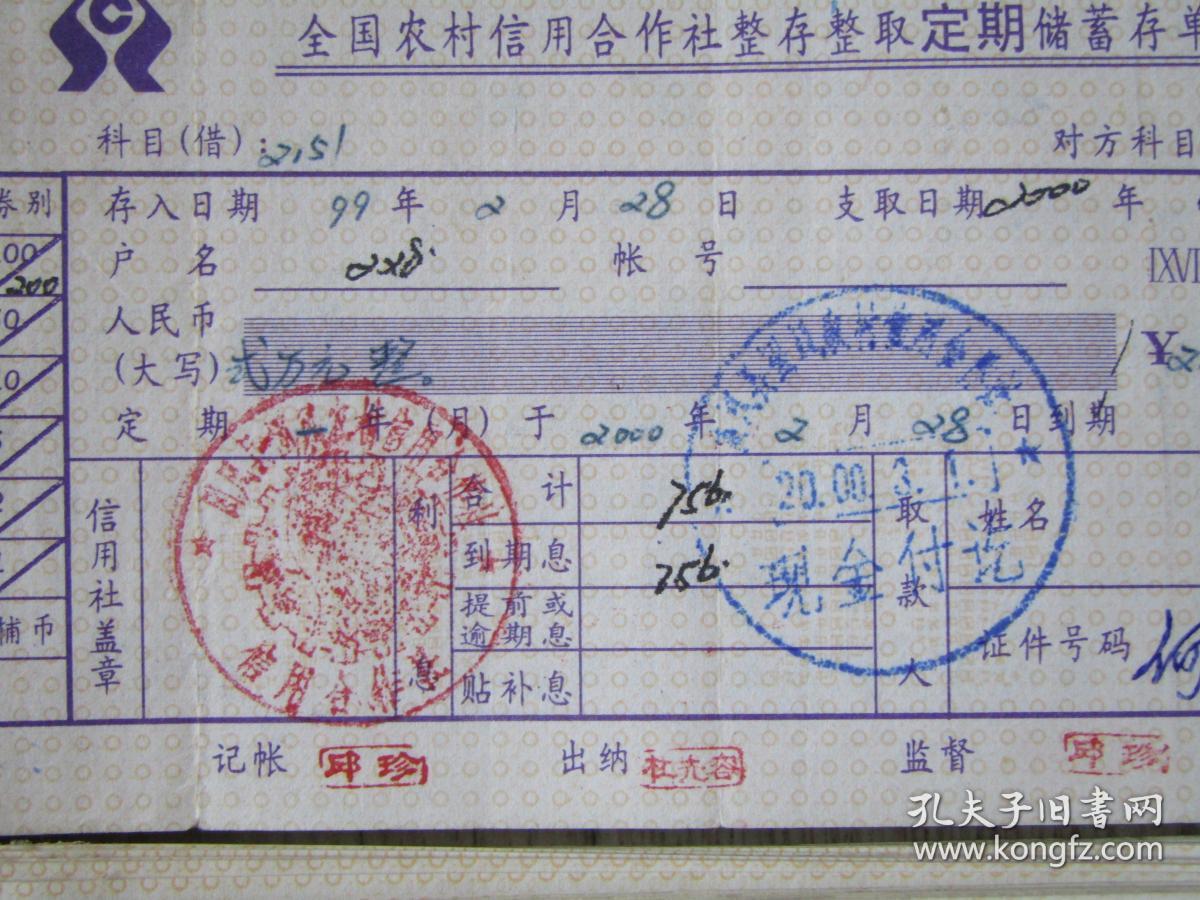 全国农村信用合作社整存整取定期储蓄存单
科目(借):2151
对方科目
券别
存入日期 99年 2月 28日 支取日期 2000年
200
户名 帐号
人民币
(大写) 弍万元整。 ¥2
定期 一年(月)于 2000年 2月 28日到期
信用社盖章
利息
合计 756.
到期息 756.
提前或逾期息
贴补息
取款人
姓名
证件号码
信用合作社
2000.3.1
现金付讫
辅币
记帐 邱珍 出纳 杜先容 监督 邱珍
孔夫子旧书网
www.kongfz.com